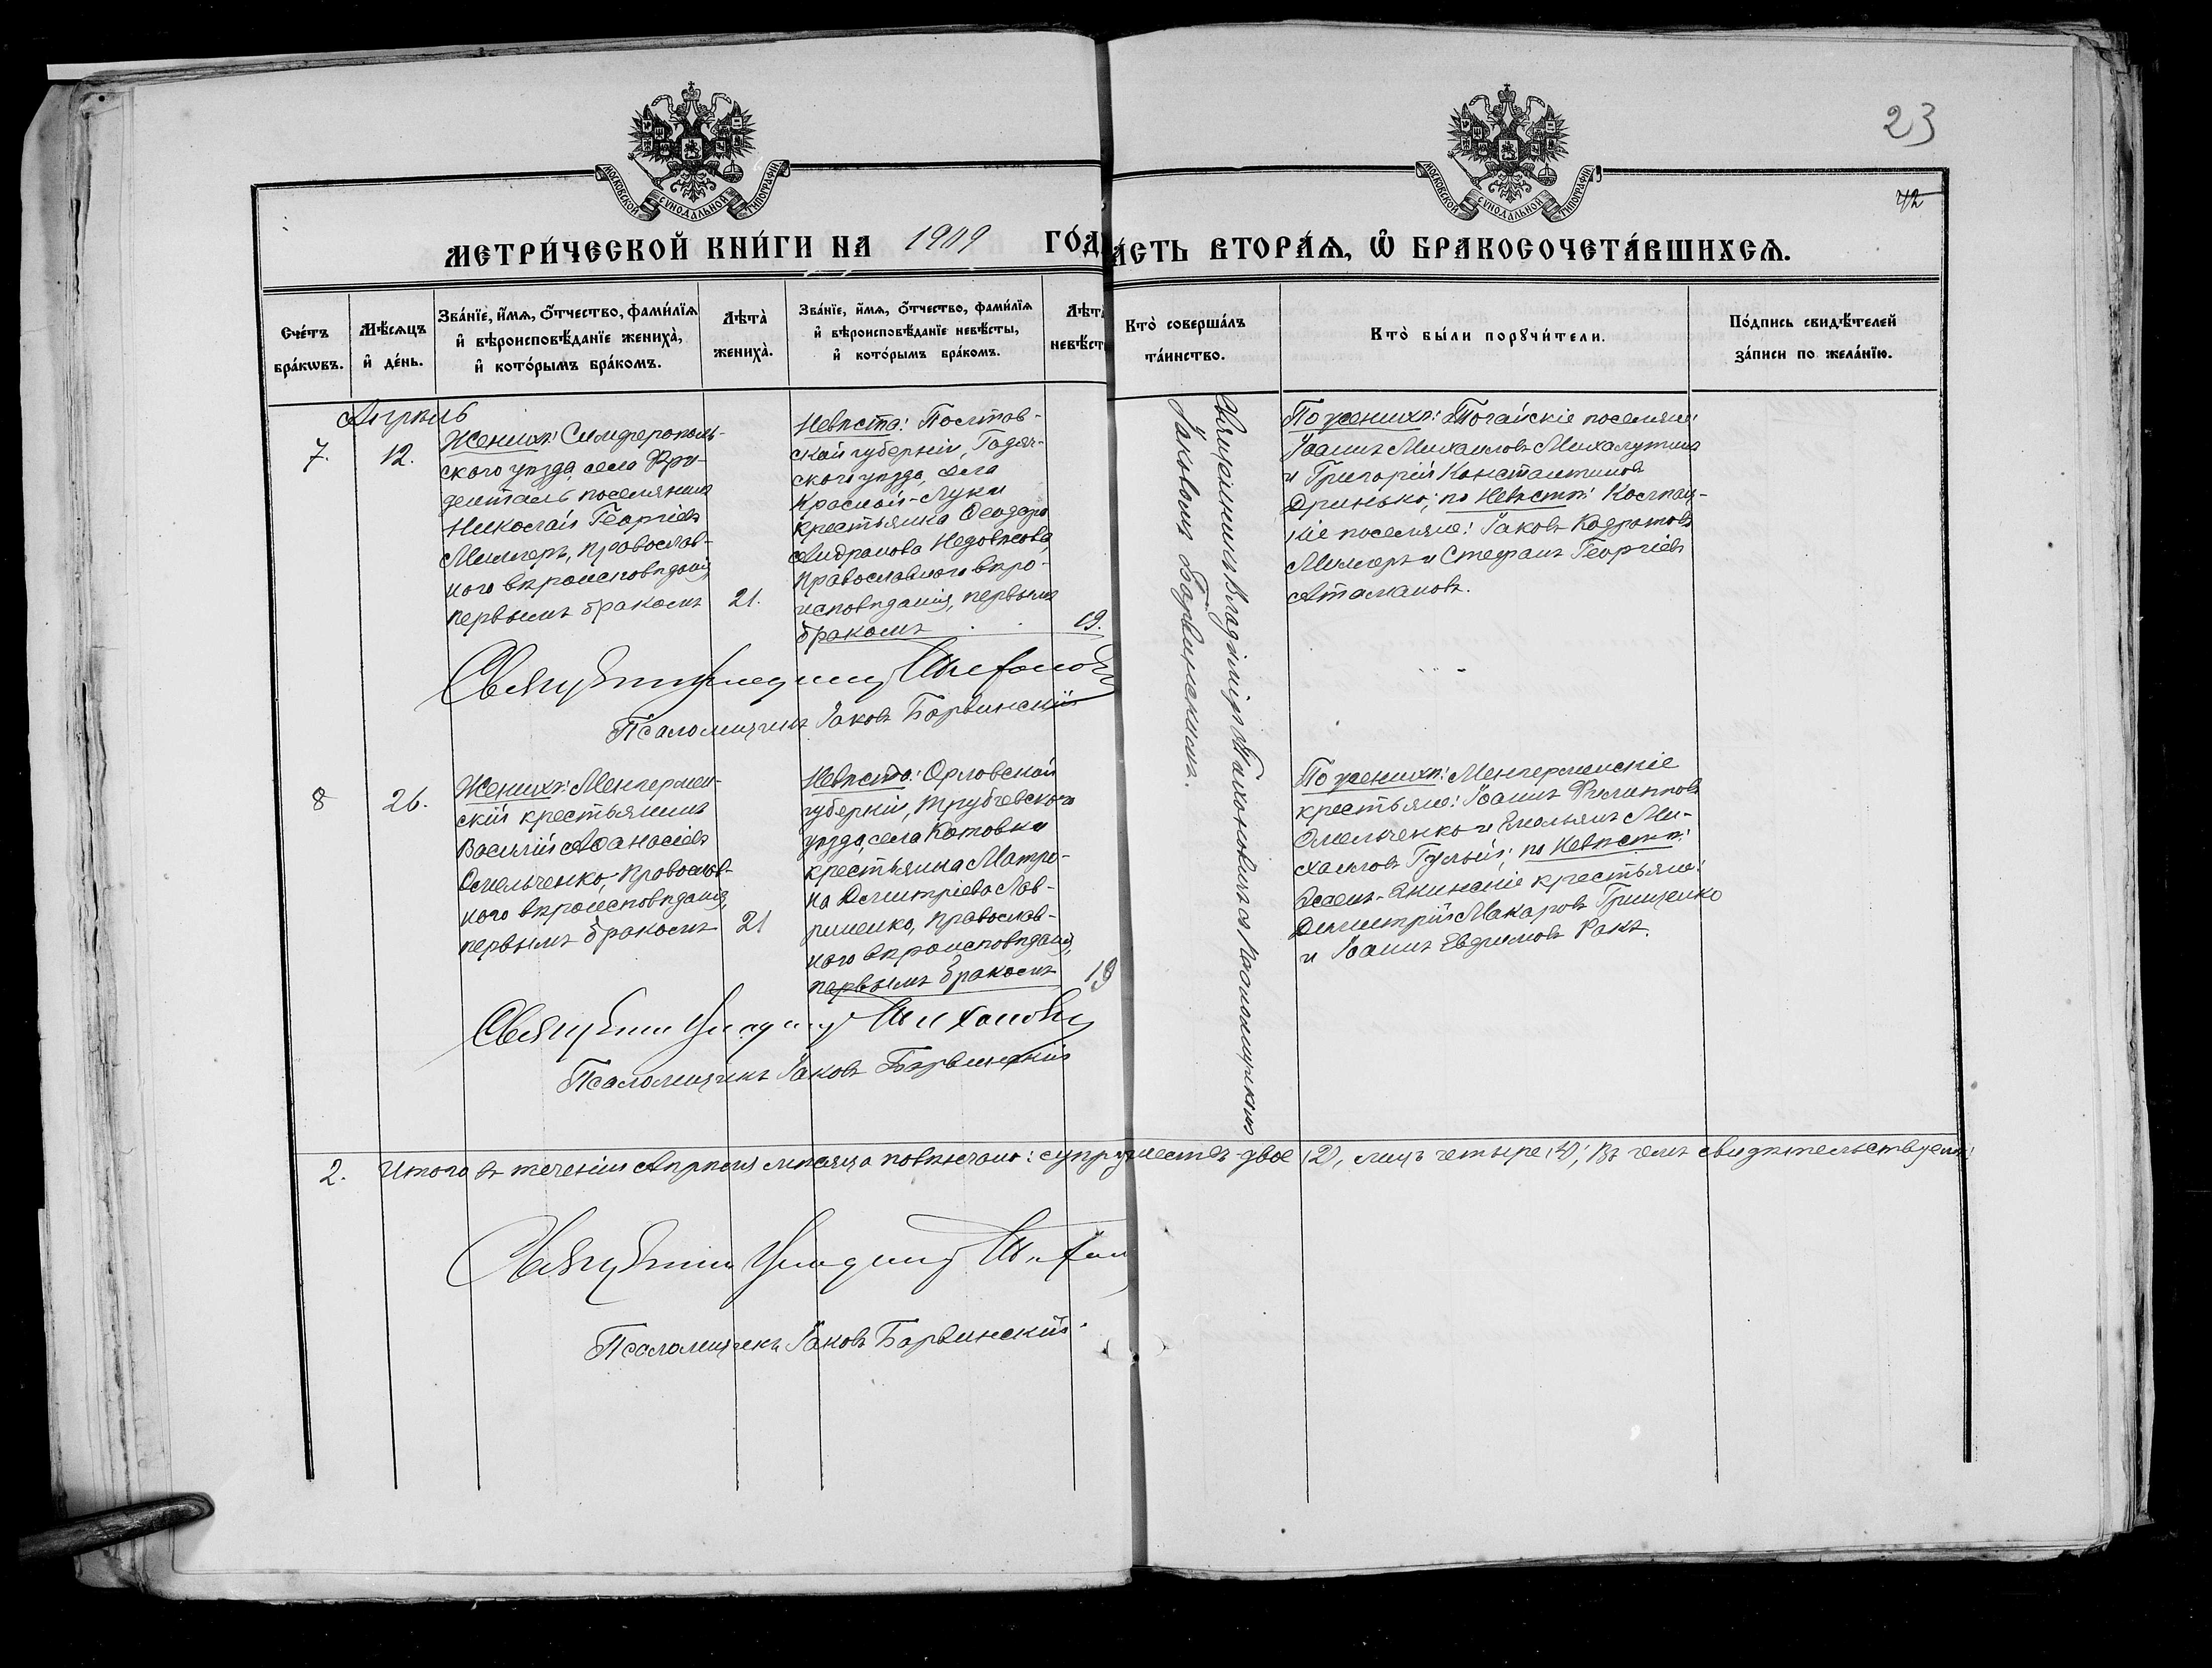 23
42
МОСКОВСКОЙ СѴНОДАЛЬНОЙ ТИПОГРАФІИ
МОСКОВСКОЙ СѴНОДАЛЬНОЙ ТИПОГРАФІИ
МЕТРИ́ЧЕСКОЙ КНИ́ГИ НА 1909 ГО́Д
А́СТЬ ВТОРА́Ѧ, Ѿ БРАКОСОЧЕТА́ВШИХСѦ.
Сче́тъ бра́кѡвъ.
Мѣ́сѧцъ и҆ де́нь.
Зва́нїе, и҆́мѧ, ѻ҆́тчество, фами́лїѧ
и҆ вѣроисповѣ́данїе жениха̀,
и҆ кото́рымъ бра́комъ.
Лѣта̀ жениха̀.
Зва́нїе, и҆́мѧ, ѻ҆́тчество, фами́лїѧ
и҆ вѣроисповѣ́данїе невѣ́сты,
и҆ кото́рымъ бра́комъ.
Лѣта
невѣ́ст
Кто̀ соверша́лъ
та́инство.
Кто̀ бы́ли порꙋчи́тели.
По́дпись свидѣ́телей
за́писи по жела́нїю.
Апрѣль
7.
12.
Женихъ: Симферополь-
скаго уѣзда, села Фри-
денталь поселянинъ
Николай Георгіевъ
Миллеръ, православ-
наго вѣроисповѣданія,
первымъ бракомъ
21.
Невѣста: Полтав-
ской губерніи, Гадяч-
скаго уѣзда, села
Красной-Луки
крестьянка Ѳеодора
Андреева Недовѣсова,
православнаго вѣро-
исповѣданія, первымъ
бракомъ
19.
Священникъ Владиміръ Тихановичъ съ псаломщикомъ
Іаковомъ Барвинскимъ.
По женихѣ: Тогайскіе поселяне:
Іоаннъ Михаиловъ Михалутинъ
и Григорій Константиновъ
Дринько; по невѣстѣ:
кіе поселяне: Іаковъ Кодратовъ
Миллеръ и Стефанъ Георгіевъ
Атамановъ.
Священникъ Владиміръ Тихановичъ
Псаломщикъ Іаковъ Барвинскій
8
26.
Женихъ: Менгермен-
скій крестьянинъ
Василій Аѳанасіевъ
Омельченко, православ-
наго вѣроисповѣданія,
первымъ бракомъ
21
Невѣста: Орловской
губерніи, Трубчевскаго
уѣзда, села Котовки
крестьянка Матро-
на Димитріева Лав-
риненко, православ-
наго вѣроисповѣданія,
первымъ бракомъ
19
По женихѣ: Менгерменскіе
крестьяне: Іоаннъ Филипповъ
Омельченко и Емельянъ Ми-
хаиловъ Гулый; по невѣстѣ:
крестьяне:
Димитрій Макаровъ Грищенко
и Іоаннъ Евфимовъ Ракъ.
Священникъ Владиміръ Тихановичъ
Псаломщикъ Іаковъ Барвинскій
2. Итого въ теченіи Апрѣля мѣсяца повѣнчано: супружествъ двое (2), лицъ четыре (4); въ чемъ свидѣтельствуемъ:
Священникъ Владиміръ Тихан
Псаломщикъ Іаковъ Барвинскій.